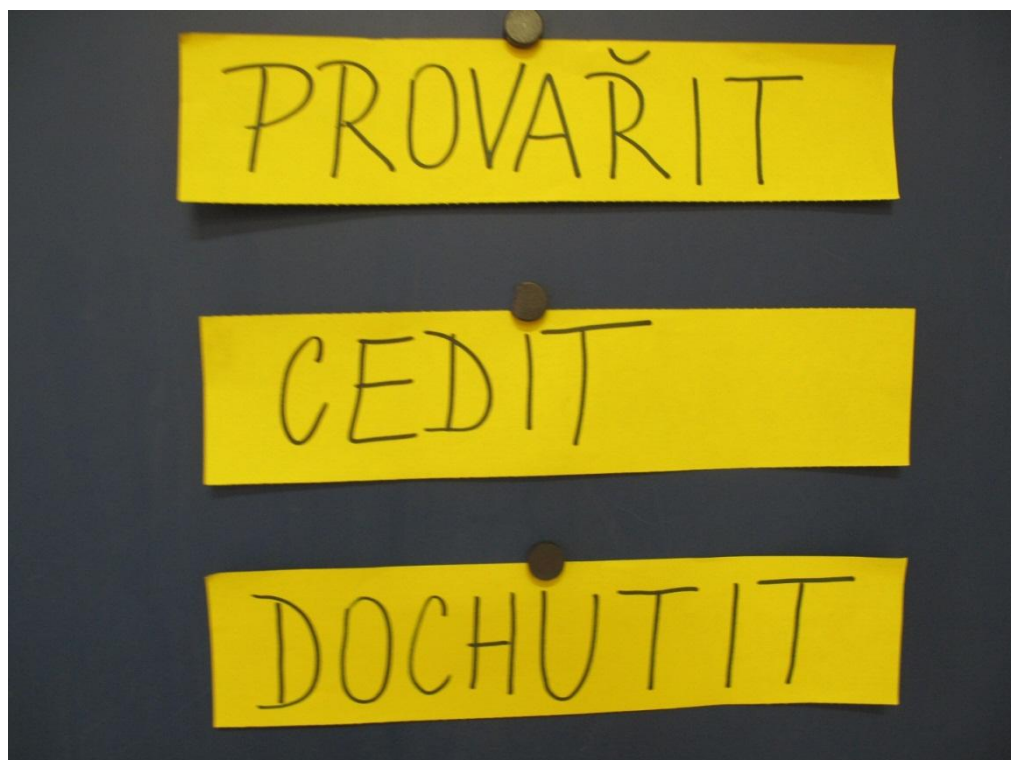 PROVAŘIT
CEDIT
DOCHUTIT